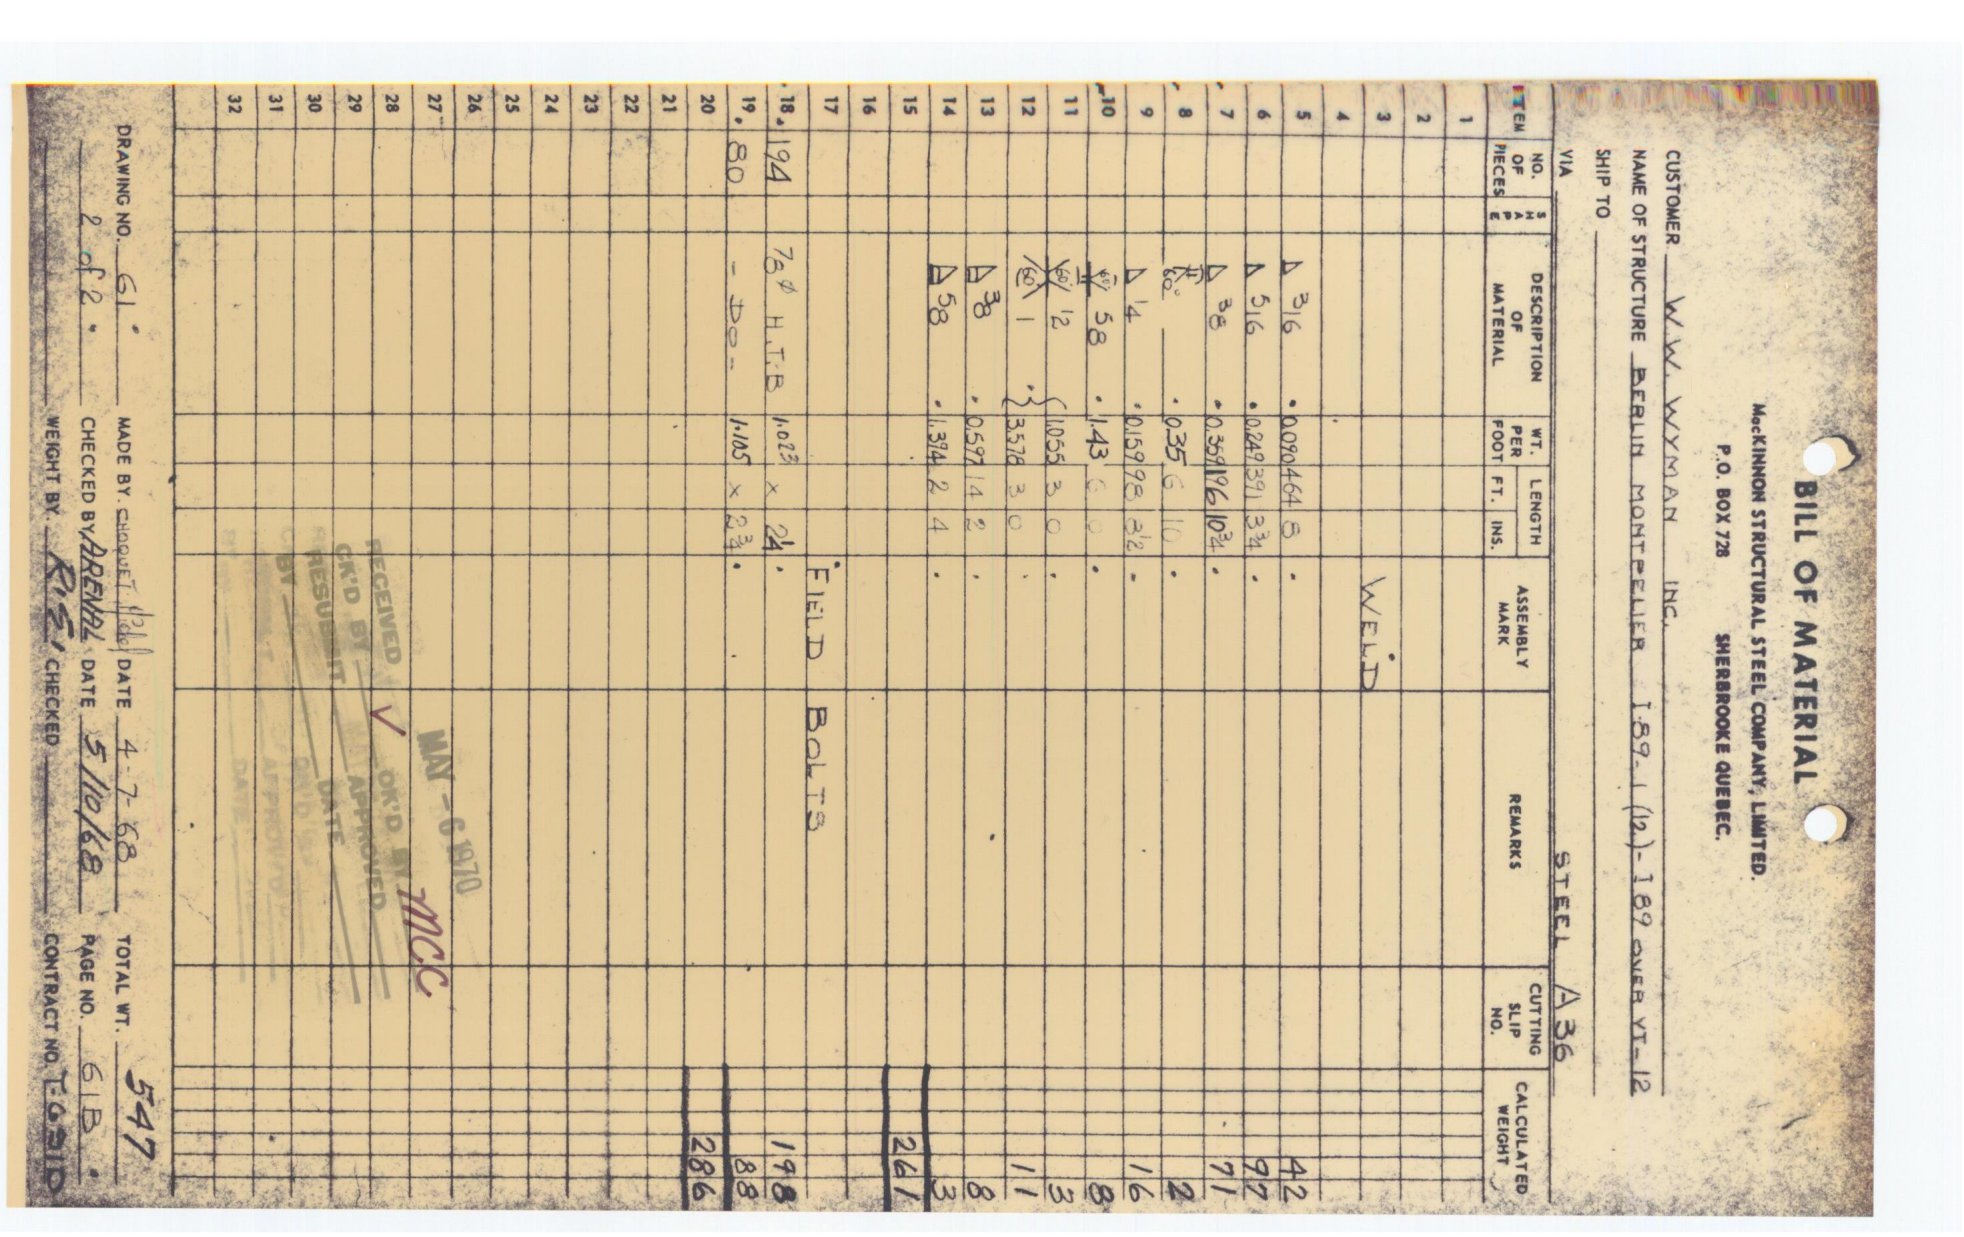 BILL OF MATERIAL
MacKINNON STRUCTURAL STEEL COMPANY, LIMITED.
P.O. BOX 728 SHERBROOKE QUEBEC.
CUSTOMER W. W. WYMAN INC.
NAME OF STRUCTURE BERLIN MONTPELIER I 89-1 (12)- I 89 OVER VT-12
SHIP TO
VIA STEEL A36
ITEM NO. OF PIECES SHAPE DESCRIPTION OF MATERIAL WT. PER FOOT LENGTH FT. INS. ASSEMBLY MARK REMARKS CUTTING SLIP NO. CALCULATED WEIGHT
1
2
3 WELD
4
5 3/16 0.090 464 8 42
6 5/16 0.249 391 3 3/4 97
7 3/8 0.359 196 10 3/4 71
8 60° 0.35 6 10 2
9 1/4 0.159 98 3 1/2 16
10 60° 5/8 1.43 6 0 8
11 60° 1/2 1.055 3 0 3
12 60° 1 3.578 3 0 11
13 3/8 0.597 14 2 8
14 5/8 1.394 2 4 3
15 261
16
17 FIELD BOLTS
18 194 7/8 ø H.T.B 1.023 x 2 1/4 198
19 80 - DO - 1.105 x 2 3/4 88
20 286
21
22
23
24
25
26
27
28
29
30
31
32
MAY - 6 1970
RECEIVED
CK'D BY OK'D BY MCC
RESUBMIT APPROVED
BY DATE
DRAWING NO. 61 MADE BY. CHOQUET DATE 4-7-68 TOTAL WT. 547
2 of 2 CHECKED BY ARENAL DATE 5/10/68 PAGE NO. 61B
WEIGHT BY. R.E. CHECKED CONTRACT NO.